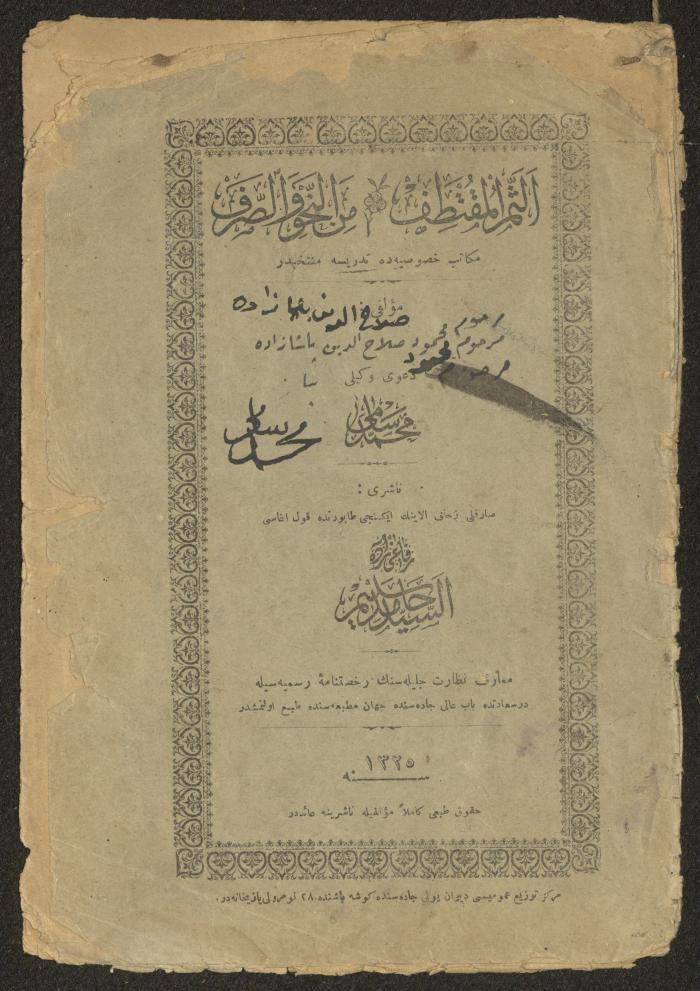 اَلثَّمَرُ الْمُقْتَطَفْ مِنَ النَّحْوِ وَالصَّرَفِ
مكاتب خصوصيه‌ده تدريسه منتخبدر
مؤلفى
صلاح الدين پاشا زاده
مرحوم محمود صلاح الدين پاشازاده
مرحوم محمود
دعوى وكيلى
محمد سامى
محمد سامى
ناشرى :
صارقلى زحافى الاينك ايكنجى طابورنده قول اغاسى
رفاعى زاده
السيد حامد نسيم
معارف نظارت جليله‌سنك رخصتنامۀ رسميه‌سيله
درسعادتده باب عالى جاده‌سنده جهان مطبعه‌سنده طبع اولنمشدر
١٣٢٥
سنه
حقوق طبعى كاملاً مؤلفيله ناشرينه عائددر
مركز توزيع عموميسى ديوان يولى جاده‌سنده كوشه باشنده ٢٨ نومرولى يازيخانه‌در.